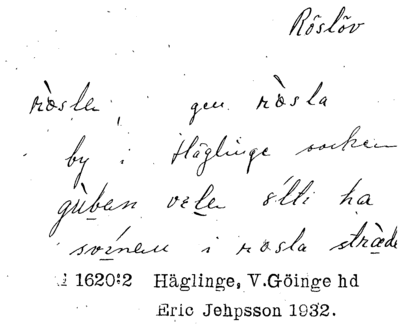 Röslöv
ròslen, gen ròsla
by i Häglinge socken
gùban velen sılti ha
svínen i rosla stræde
1620:2 Häglinge, V.Göinge hd
Eric Jehpsson 1932.